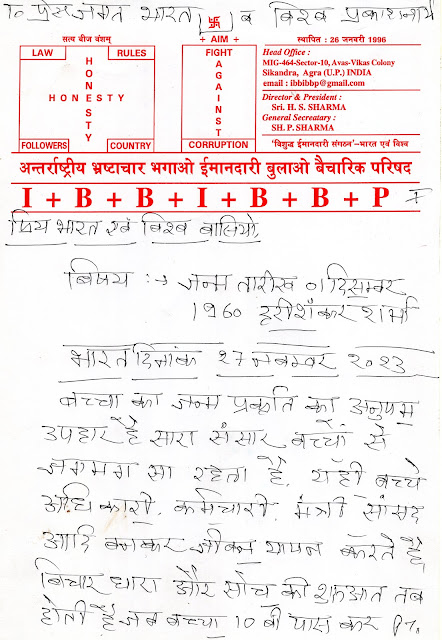 To प्रेस जगत भारत व विश्व प्रकाशनार्थ
सत्य बीज वंशम्
+ AIM +
स्थापित : 26 जनवरी 1996
LAW
RULES
HONESTY
HONESTY
FOLLOWERS
COUNTRY
FIGHT
AGAINST
CORRUPTION
Head Office :
MIG-464-Sector-10, Avas-Vikas Colony
Sikandra, Agra (U.P.) INDIA
email : ibbibbp@gmail.com
Director & President :
Sri. H. S. SHARMA
General Secreatary :
SH. P. SHARMA
'विशुद्ध ईमानदारी संगठन'-भारत एवं विश्व
अन्तर्राष्ट्रीय भ्रष्टाचार भगाओ ईमानदारी बुलाओ बैचारिक परिषद
I + B + B + I + B + B + P
प्रिय भारत एवं विश्व वासियो,
बिषय :→ जन्म तारीख 01 दिसम्बर
1960 हरीशंकर शर्मा
भारत दिनांक 27 नबम्बर 2023
बच्चा का जन्म प्रकृति का अनुपम
उपहार है सारा संसार बच्चों से
जगमग सा रहता है. यही बच्चे
अधिकारी. कर्मचारी. मंत्री सांसद
आदि बनकर जीवन यापन करते है,
बिचार धारा और सोच की शुरुआत तब
होती है जब बच्चा 10 बी पास कर